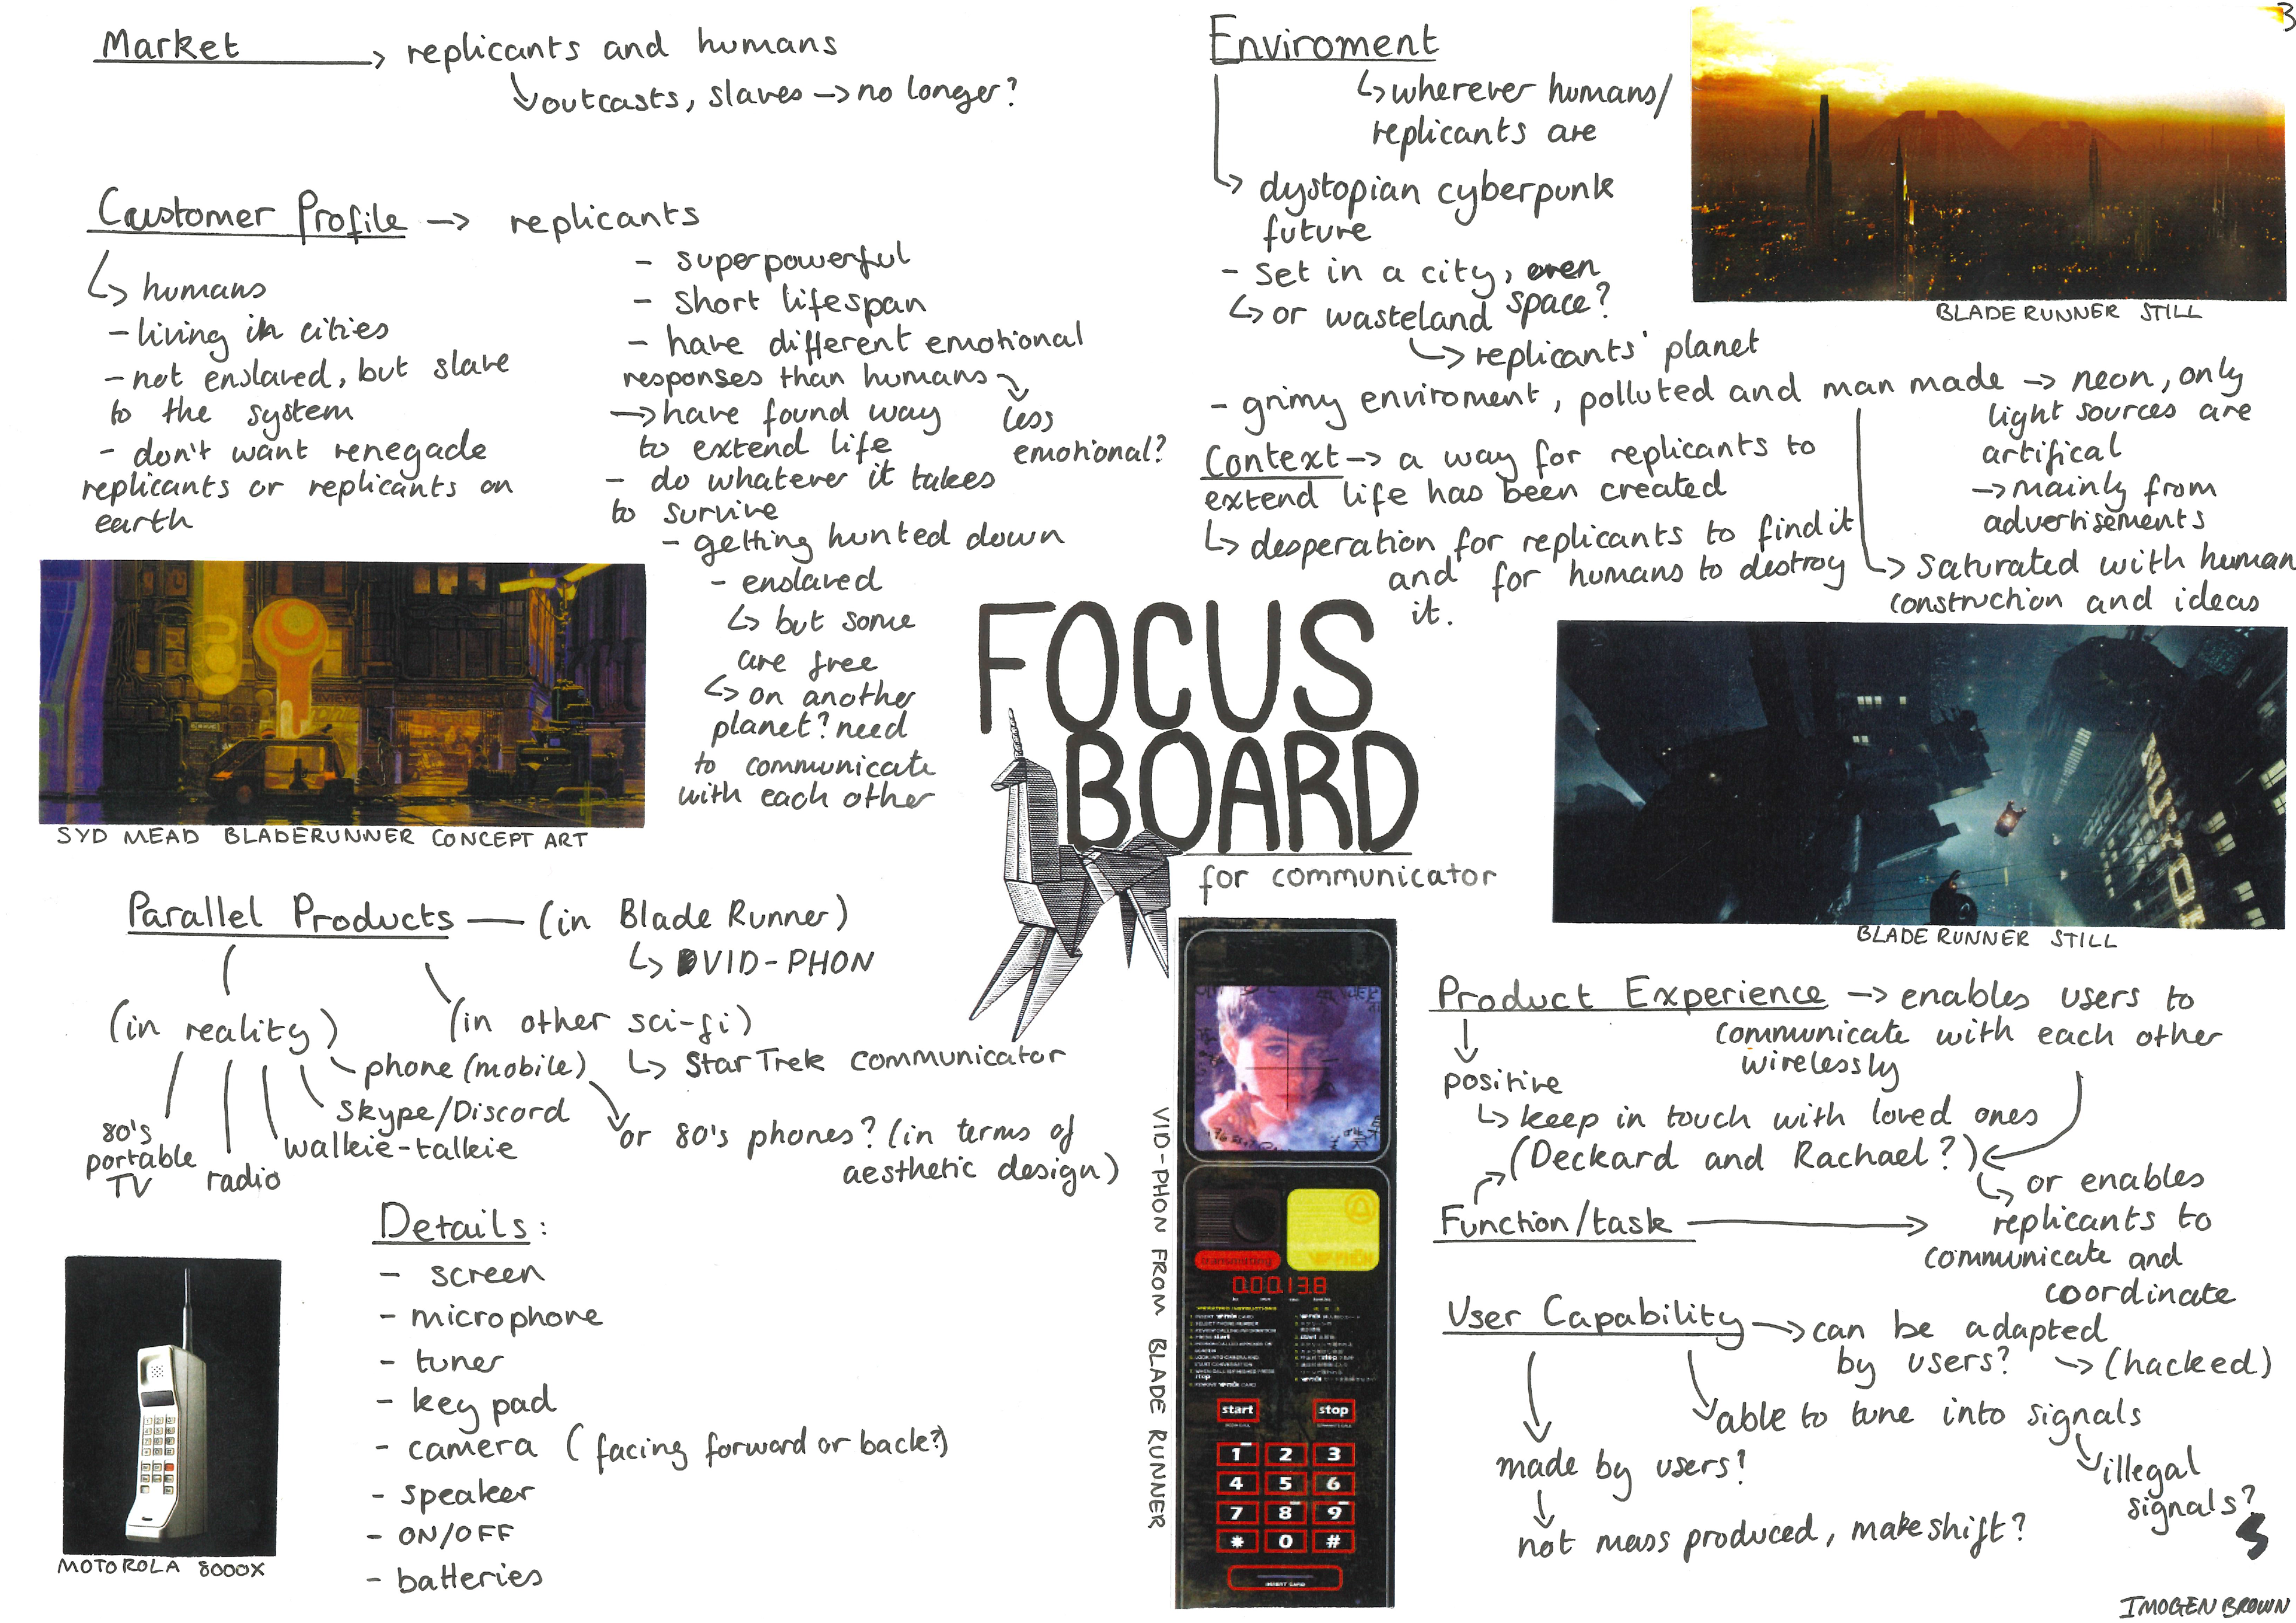 3
Market → replicants and humans
↳ outcasts, slaves → no longer?
Customer Profile → replicants
↳ humans
- living in cities
- not enslaved, but slave
to the system
- don't want renegade
replicants or replicants on
earth
- superpowerful
- short lifespan
- have different emotional
responses than humans
↘ less
emotional?
→ have found way
to extend life
- do whatever it takes
to survive
- getting hunted down
- enslaved
↳ but some
are free
↳ on another
planet? need
to communicate
with each other
SYD MEAD BLADERUNNER CONCEPT ART
Enviroment
↳ wherever humans/
replicants are
↳ dystopian cyberpunk
future
- set in a city, even
space?
↳ or wasteland
↳ replicants' planet
- grimy enviroment, polluted and man made → neon, only
light sources are
artifical
→ mainly from
advertisements
↳ saturated with human
construction and ideas
BLADERUNNER STILL
Context → a way for replicants to
extend life has been created
↳ desperation for replicants to find it
and for humans to destroy
it.
BLADERUNNER STILL
FOCUS
BOARD
for communicator
Parallel Products — (in Blade Runner)
↳ VID-PHON
(in reality)
(in other sci-fi)
↳ Star Trek communicator
phone (mobile)
↘ or 80's phones? (in terms of
aesthetic design)
Skype/Discord
walkie-talkie
radio
80's
portable
TV
Details:
- screen
- microphone
- tuner
- key pad
- camera (facing forward or back?)
- speaker
- ON/OFF
- batteries
MOTOROLA 8000X
VID-PHON FROM BLADE RUNNER
transmitting
VID-PHŌN
start
stop
1 2 3
4 5 6
7 8 9
* 0 #
INSERT CARD
Product Experience → enables users to
communicate with each other
wirelessly
↓
positive
↳ keep in touch with loved ones
(Deckard and Rachael?)
↳ or enables
replicants to
communicate and
coordinate
Function/task →
User Capability → can be adapted
by users? → (hacked)
able to tune into signals
illegal
signals?
made by users?
↓
not mass produced, makeshift?
IMOGEN BROWN